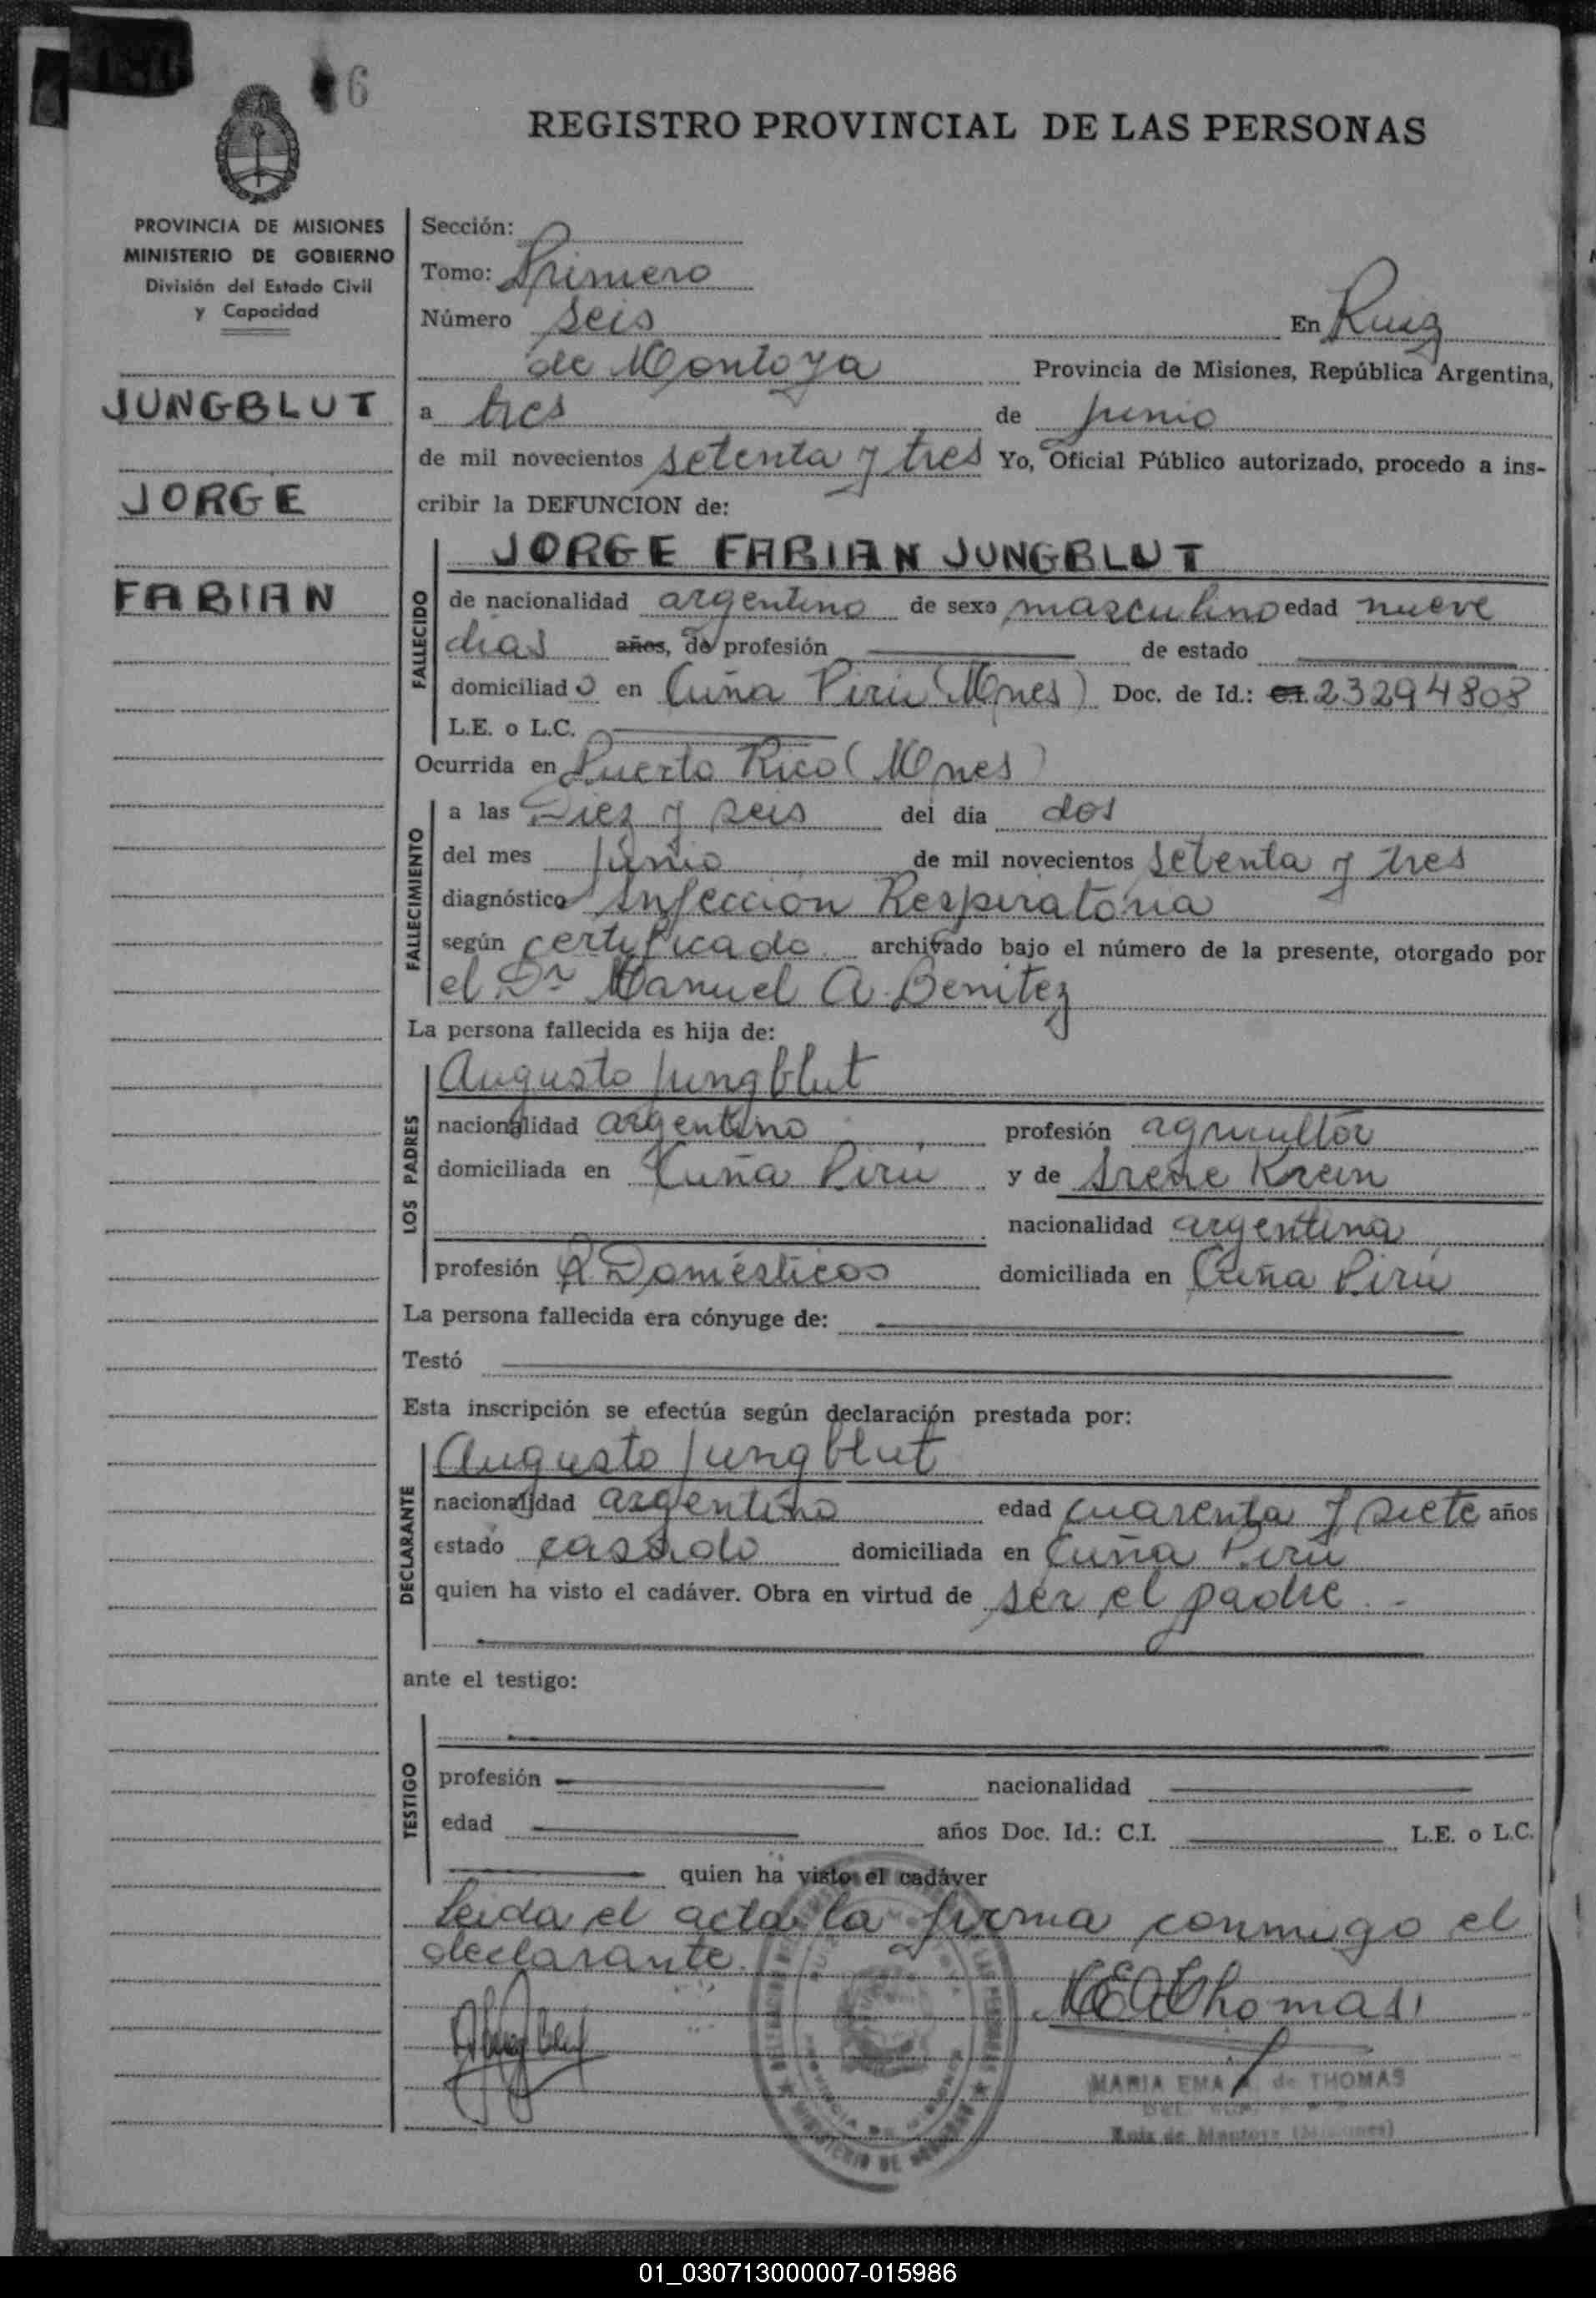 6
REGISTRO PROVINCIAL DE LAS PERSONAS
PROVINCIA DE MISIONES
MINISTERIO DE GOBIERNO
División del Estado Civil
y Capacidad
JUNGBLUT
JORGE
FABIAN
Sección:
Tomo: Primero
Número seis En Ruiz
de Montoya Provincia de Misiones, República Argentina,
a tres de Junio
de mil novecientos setenta y tres Yo, Oficial Público autorizado, procedo a ins-
cribir la DEFUNCION de:
FALLECIDO
JORGE FABIAN JUNGBLUT
de nacionalidad argentino de sexo masculino edad nueve
dias años, de profesión de estado
domiciliado en Cuña Pirú (Mnes) Doc. de Id.: C.I. 23294808
L.E. o L.C.
Ocurrida en Puerto Rico (Mnes)
FALLECIMIENTO
a las Diez y seis del dia dos
del mes Junio de mil novecientos setenta y tres
diagnóstico Infección Respiratoria
según certificado archivado bajo el número de la presente, otorgado por
el Dr Manuel A. Benitez
La persona fallecida es hija de:
LOS PADRES
Augusto Jungblut
nacionalidad argentino profesión agricultor
domiciliada en Cuña Pirú y de Irene Krein
nacionalidad argentina
profesión Q Domésticos domiciliada en Cuña Pirú
La persona fallecida era cónyuge de:
Testó
Esta inscripción se efectúa según declaración prestada por:
DECLARANTE
Augusto Jungblut
nacionalidad argentino edad cuarenta y siete años
estado casado domiciliada en Cuña Pirú
quien ha visto el cadáver. Obra en virtud de ser el padre
ante el testigo:
TESTIGO
profesión nacionalidad
edad años Doc. Id.: C.I. L.E. o L.C.
quien ha visto el cadáver
Leida el acta la firma conmigo el
declarante.
MEAThomas
MARIA EMA de THOMAS
Ruiz de Montoya (Misiones)
01_030713000007-015986